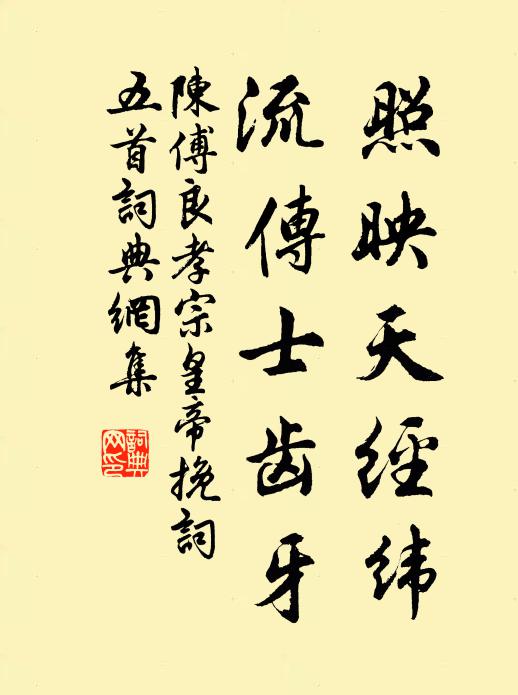 照映天經纬
流傳士齿牙
陳傅良孝宗皇帝挽詞
五首詞典網集
詞典
网印